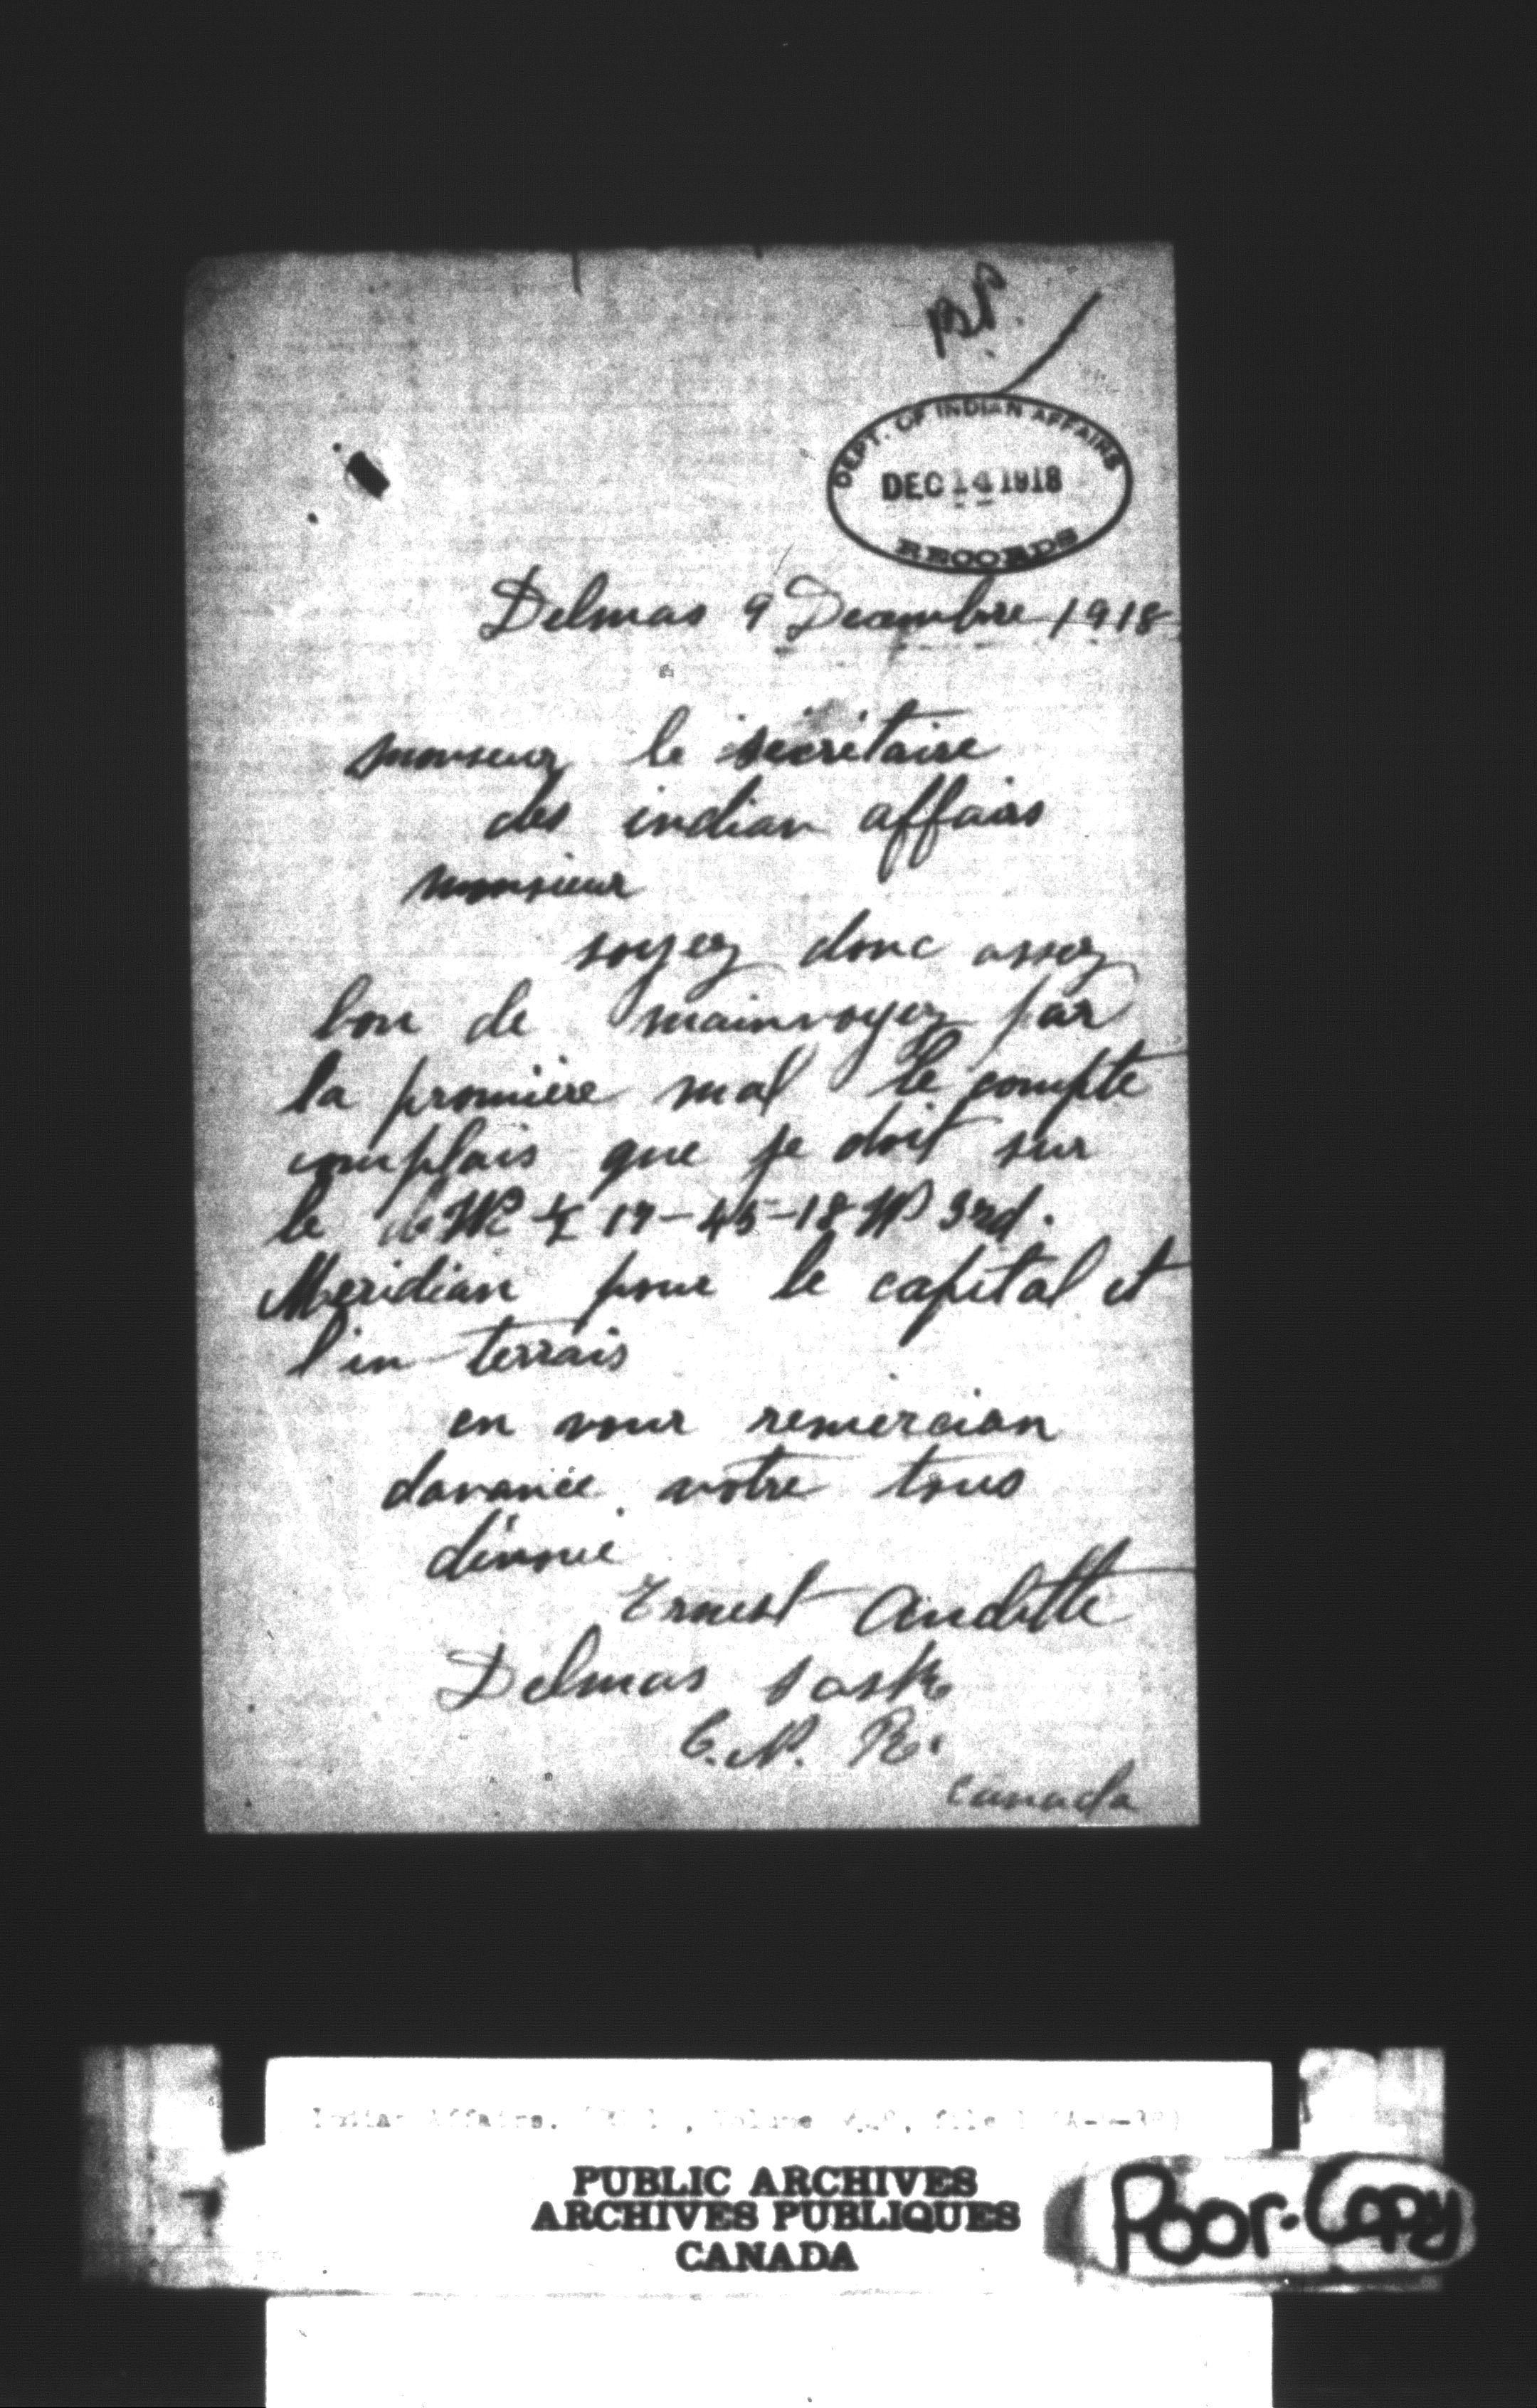 DEPT. OF INDIAN AFFAIRS
DEC 14 1918
RECORDS
Delmas 9 Decembre 1918
monseur le secrétaire
des indian affairs
monsieur
soyez donc assez
bon de mainvoyez par
la promière mal le compte
complais que je doit sur
le 19-45-18 W 3rd.
Meridian pour le capital et
l'in terrais
en vour remercian
davance votre tous
dévoué
Ernest Audette
Delmas Sask
C. N. R.
Canada
Indian Affairs. Volume file
PUBLIC ARCHIVES
ARCHIVES PUBLIQUES
CANADA
Poor-Copy